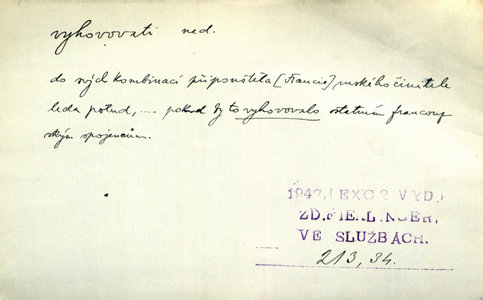 vyhovovati ned.
do svých kombinací připouštěla (Francie) ruského činitele
leda potud, .... pokud by to vyhovovalo ostatním francouz
ským spojencům.
1947. (EXC 2 VYD.)
ZD. FIERLINGER:
VE SLUŽBÁCH.
213, 34.